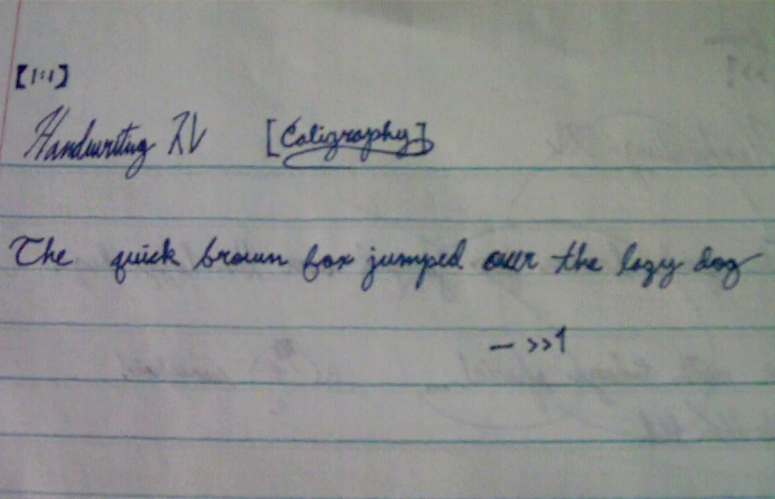 [1:1]
Handwriting XV [Caligraphy]
The quick brown fox jumped over the lazy dog
— >>1